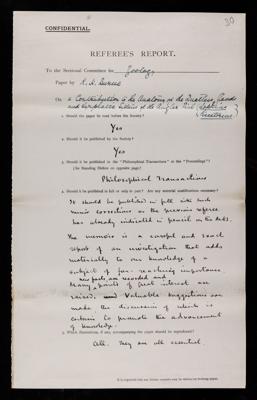 30
CONFIDENTIAL.
REFEREE'S REPORT.
To the Sectional Committee for Zoology
Paper by R. H. Burne
On "A Contribution to the Anatomy of the Ductless Glands
and Lymphatic System of the Angler Fish (Lophius
piscatorius)"
1. Should the paper be read before the Society?
Yes
2. Should it be published by the Society?
Yes
3. Should it be published in the "Philosophical Transactions" or the "Proceedings"?
(See Standing Orders on opposite page.)
Philosophical Transactions
4. Should it be published in full or only in part? Are any material modifications necessary?
It should be published in full with such
minor corrections as the previous referee
has already indicated in pencil in the text.
The memoir is a careful and exact
report of an investigation that adds
materially to our knowledge of a
subject of far-reaching importance.
new facts are recorded and
Many points of great interest are
raised, and valuable suggestions are
made the discussion of which is
certain to promote the advancement
of knowledge.
5. Which illustrations, if any, accompanying the paper should be reproduced?
All. They are all essential.